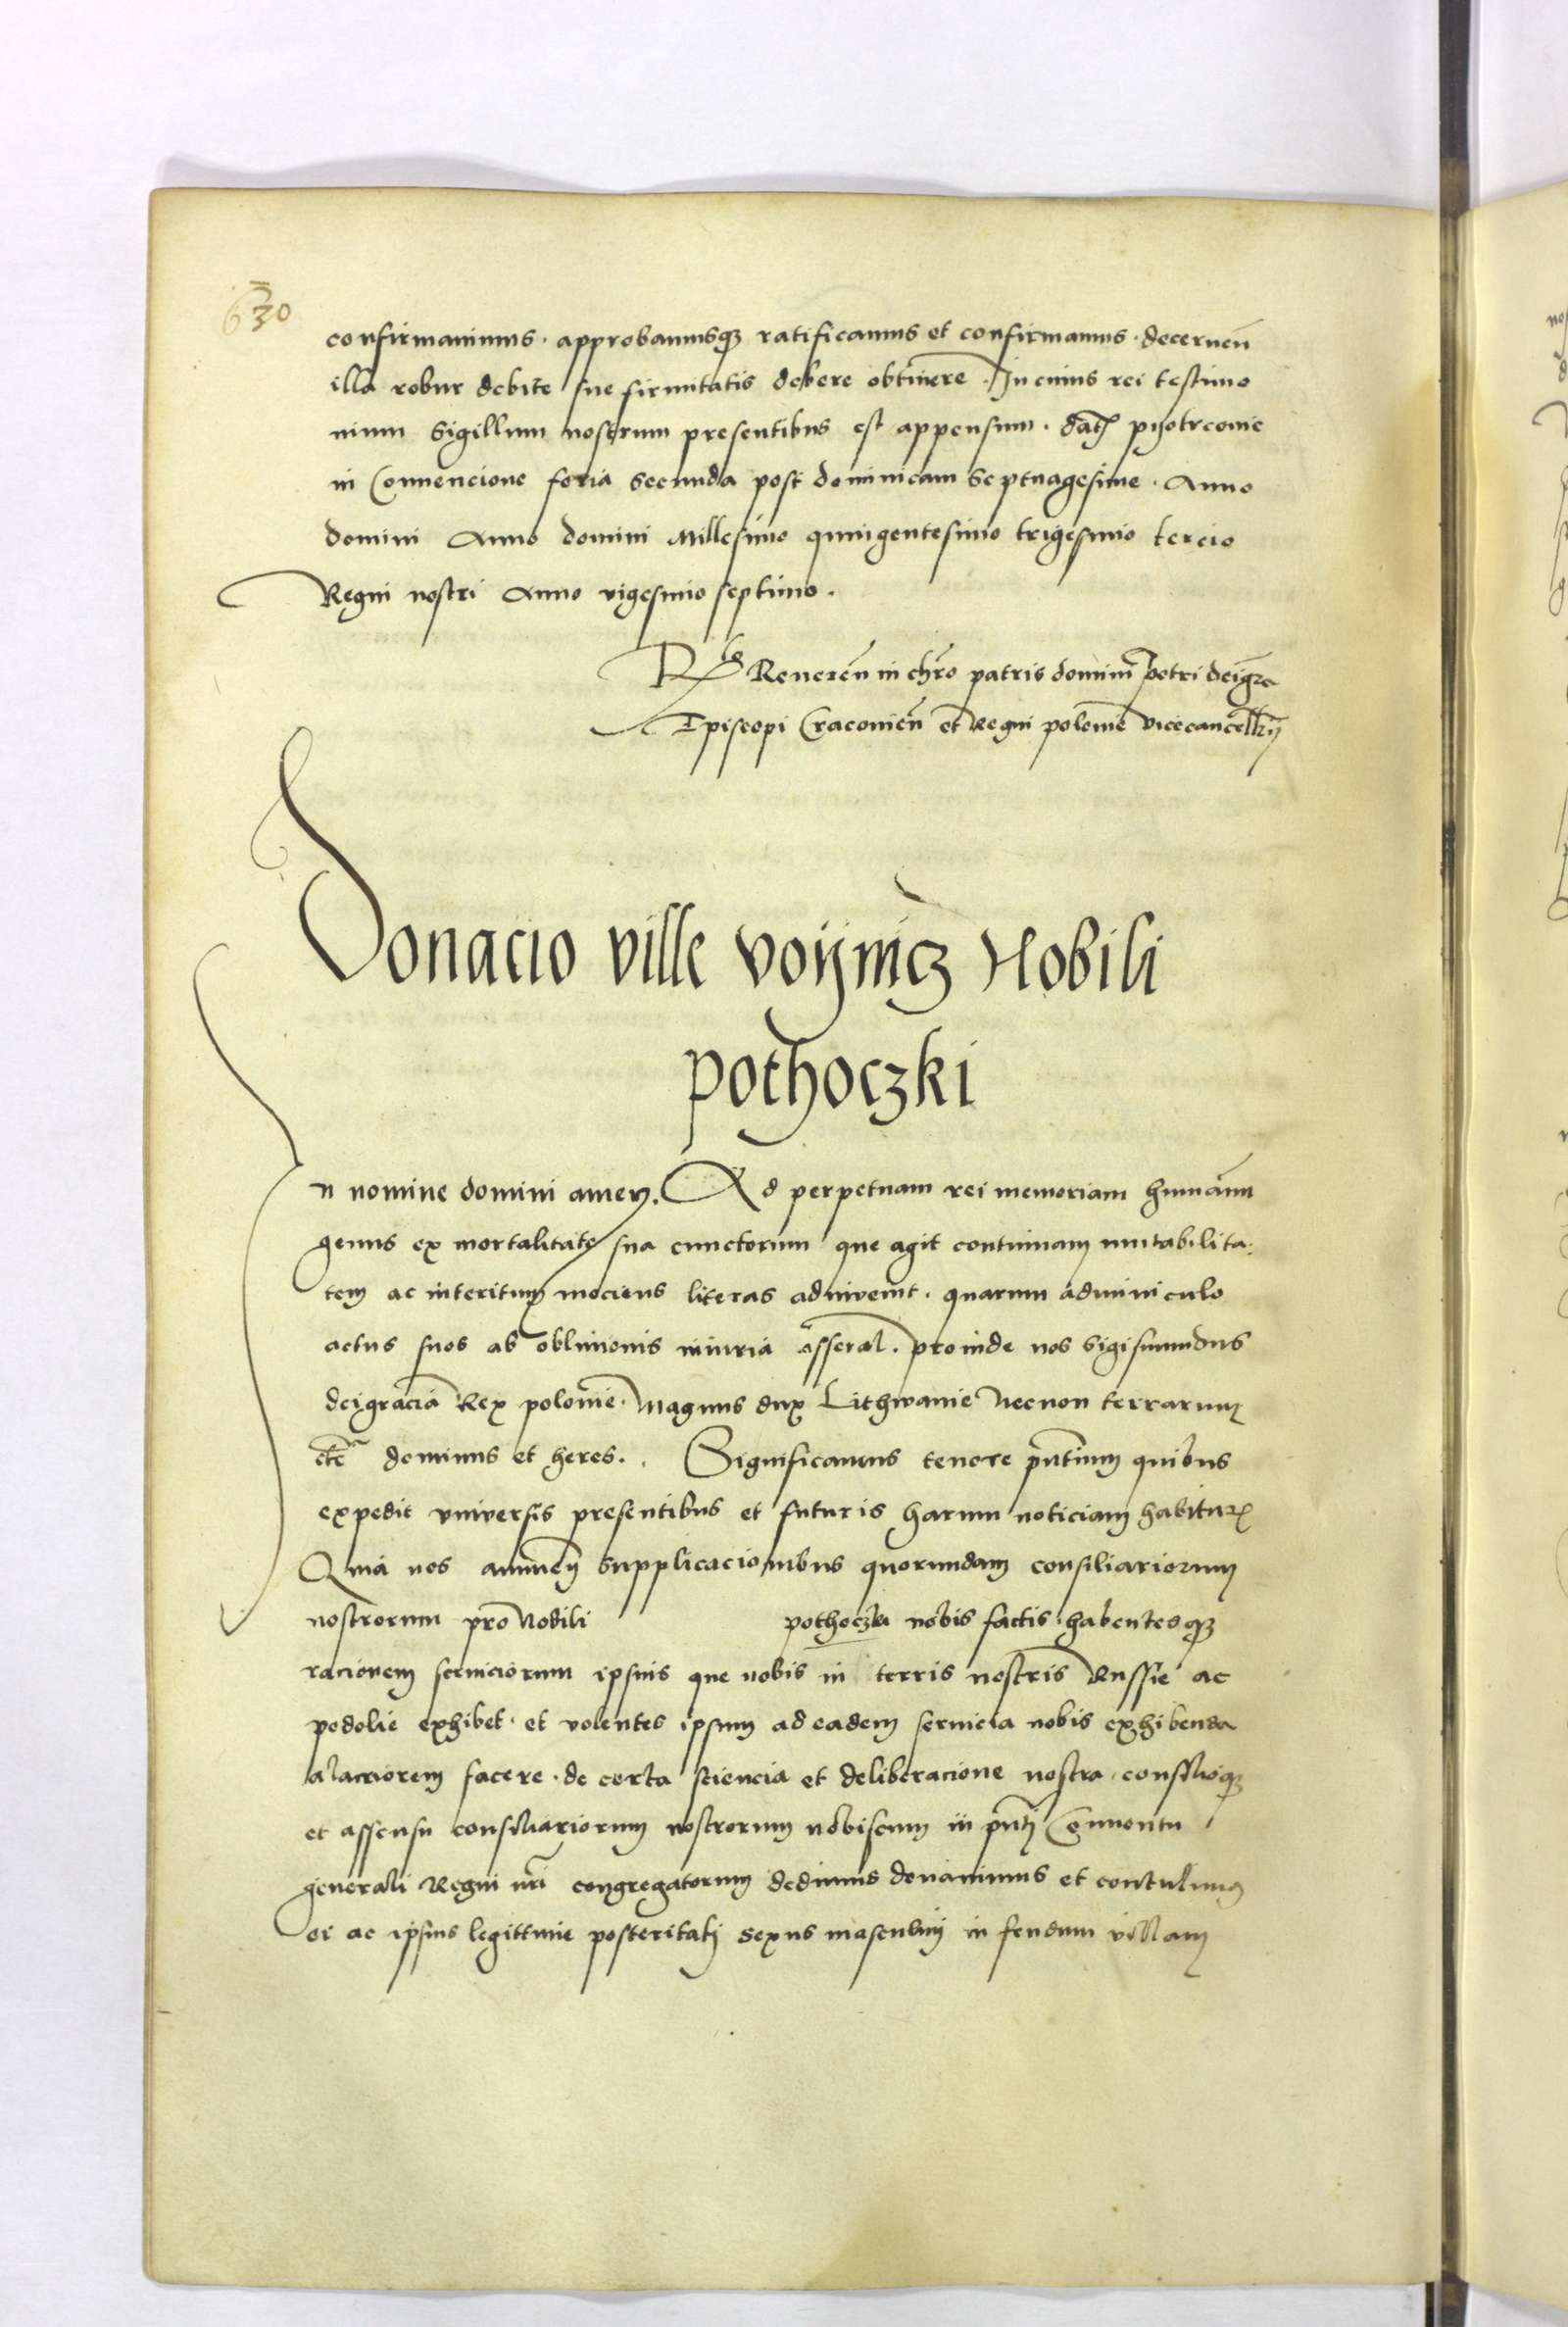 630
confirmavimus · approbavimusq3 ratificamus et confirmamus · decerneñ
illa robur debite sue firmitatis debere obtinere · In cuius rei testimo
nium sigillum nostrum presentibus est appensum · dat pyotrcovie
in Convencione feria secunda post dominicam septuagesime · Anno
domini Anno domini Millesimo quingentesimo trigesimo tercio
Regni nostri Anno vigesimo septimo ·
Revereñ in chro patris domini petri dei gra
Episcopi Cracovieñ et Regni polonie vicecancellrij
Donacio ville voijnicz Nobili
pothoczki
n nomine domini amen. Ad perpetuam rei memoriam humanu
genus ex mortalitate sua cunctorum que agit continuam mutabilita:
tem ac interitum meciens literas adinvenit · quarum adminiculo
actus suos ab oblivionis iniuria asserat · proinde nos Sigismundus
dei gracia Rex polonie · Magnus dux Lithwanie Necnon terrarum
etc dominus et heres · . Significamus tenore pntium quibus
expedit universis presentibus et futuris harum noticiam habitur
Quia nos annueñ supplicacionibus quorundam consiliariorum
nostrorum pro Nobili pothoczki nobis factis · habentesq3
racionem serviciorum ipsius que nobis in terris nostris Russie ac
podolie exhibet · et volentes ipsum ad eadem servicia nobis exhibenda
alacriorem facere · de certa sciencia et deliberacione nostra · consilioq3
et assensu consiliariorum nostrorum nobiscum in pnti Conventu
generali Regni nri congregatorum dedimus donavimus et contulimus
ei ac ipsius legittime posteritati sexus masculini in feudum villam